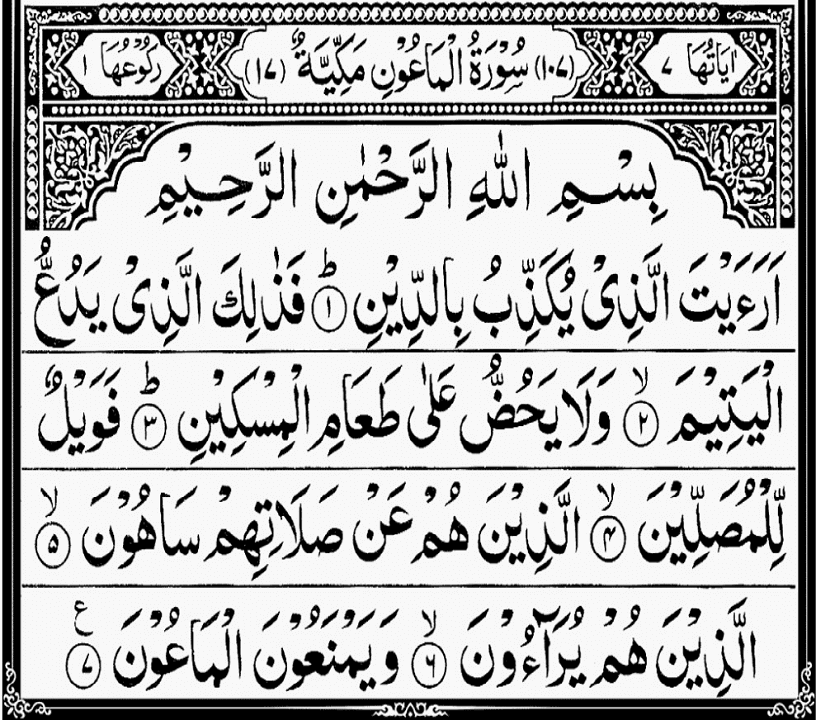 اٰيَاتُهَا ٧ (١٠٧) سُوْرَةُ الْمَاعُوْنِ مَكِّيَّةٌ (١٧) رُكُوْعُهَا ١
بِسْمِ اللّٰهِ الرَّحْمٰنِ الرَّحِيْمِ
اَرَءَيْتَ الَّذِىْ يُكَذِّبُ بِالدِّيْنِ ؕ ﴿١﴾ فَذٰلِكَ الَّذِىْ يَدُعُّ
الْيَتِيْمَ ۙ ﴿٢﴾ وَلَا يَحُضُّ عَلٰى طَعَامِ الْمِسْكِيْنِ ؕ ﴿٣﴾ فَوَيْلٌ
لِّلْمُصَلِّيْنَ ۙ ﴿۴﴾ الَّذِيْنَ هُمْ عَنْ صَلَاتِهِمْ سَاهُوْنَ ۙ ﴿۵﴾
الَّذِيْنَ هُمْ يُرَآءُوْنَ ۙ ﴿۶﴾ وَيَمْنَعُوْنَ الْمَاعُوْنَ ﴿٧﴾ ع